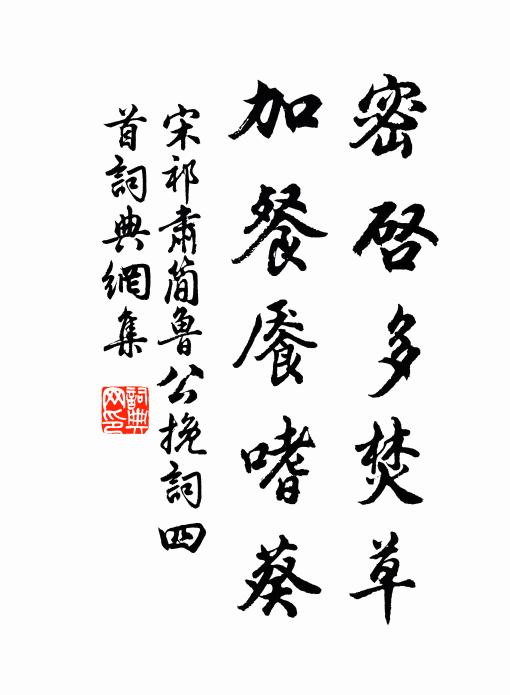 密啓多焚草
加餐饜嗜葵
宋祁肅簡魯公挽詞四
首詞典網集
詞典
网印